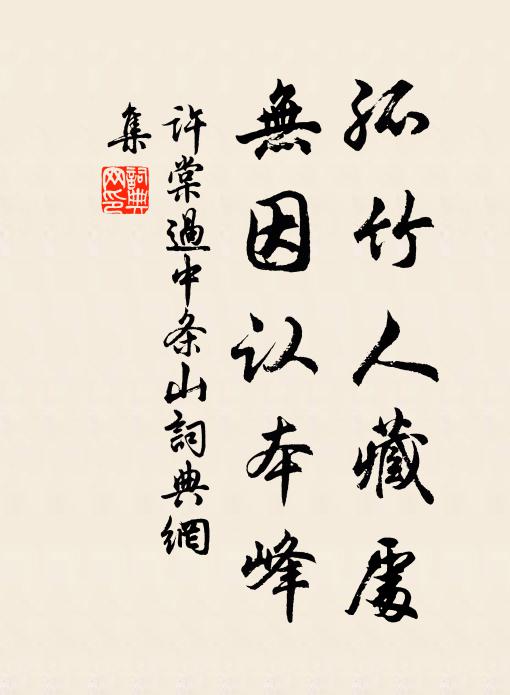 孤竹人藏處
無因认本峰
許棠過中条山詞典網
集
詞典網印